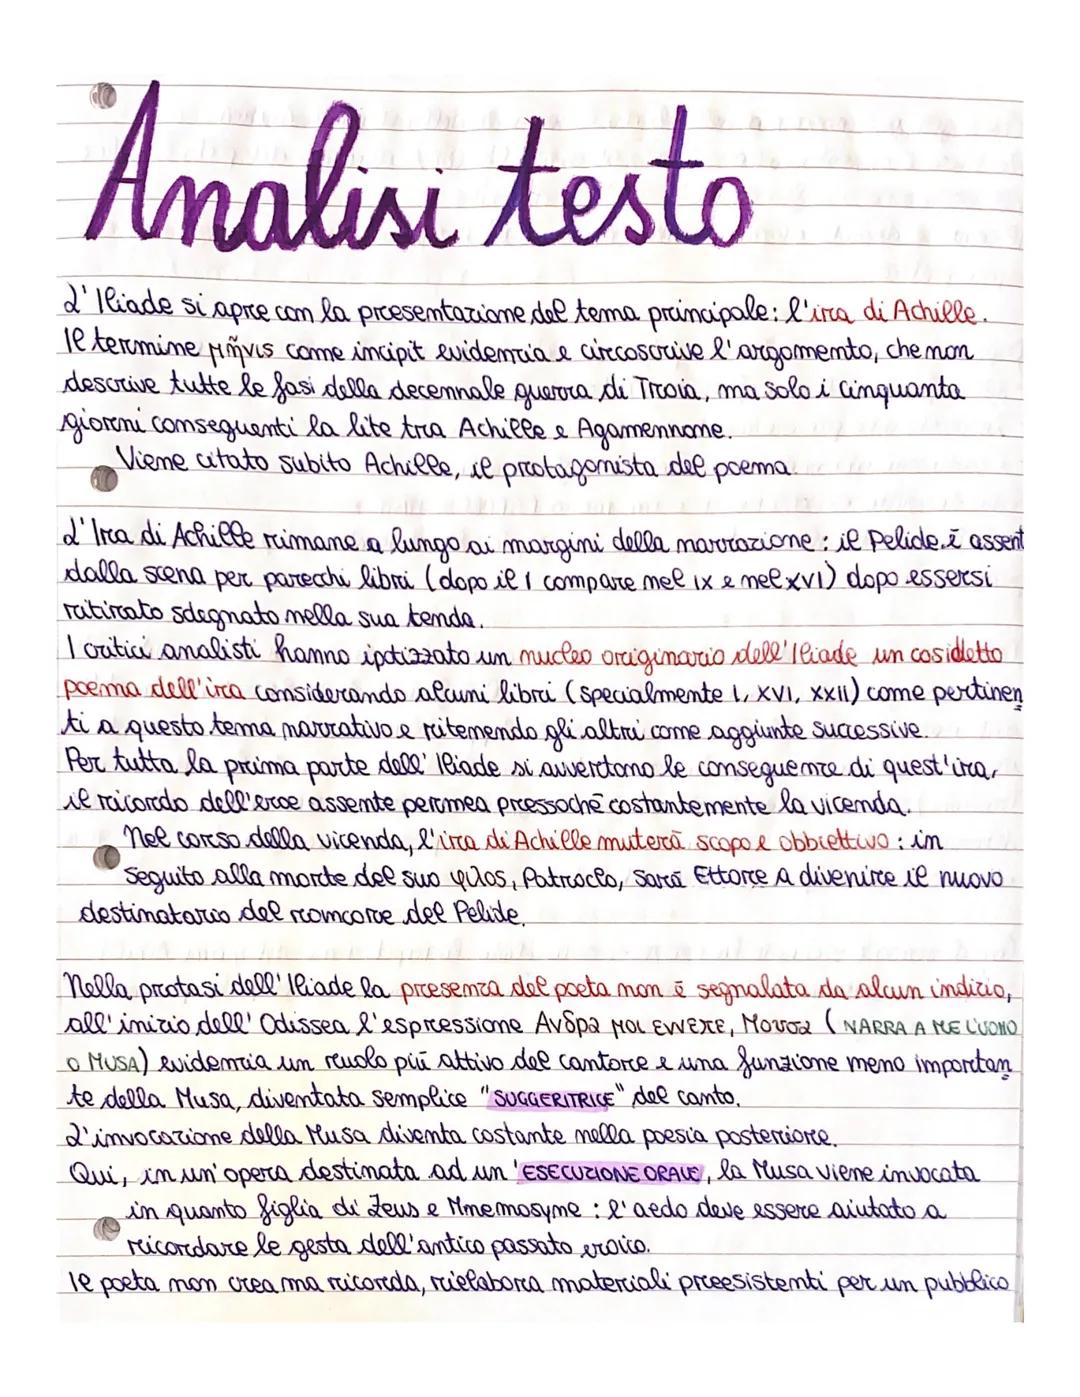 Analisi testo
L'Iliade si apre con la presentazione del tema principale: l'ira di Achille.
Il termine μῆνις come incipit evidenzia e circoscrive l'argomento, che non
descrive tutte le fasi della decennale guerra di Troia, ma solo i cinquanta
giorni conseguenti la lite tra Achille e Agamennone.
Viene citato subito Achille, il protagonista del poema.
L'Ira di Achille rimane a lungo ai margini della narrazione: il Pelide è assent
dalla scena per parecchi libri (dopo il I compare nel IX e nel XVI) dopo essersi
ritirato sdegnato nella sua tenda.
I critici analisti hanno ipotizzato un nucleo originario dell'Iliade un cosidetto
poema dell'ira considerando alcuni libri (specialmente I, XVI, XXII) come pertinen
ti a questo tema narrativo e ritenendo gli altri come aggiunte successive.
Per tutta la prima parte dell'Iliade si avvertono le conseguenze di quest'ira,
il ricordo dell'eroe assente permea pressoché costantemente la vicenda.
Nel corso della vicenda, l'ira di Achille muterà scopo e obbiettivo: in
seguito alla morte del suo φιλος, Patroclo, sarà Ettore a divenire il nuovo
destinatario del rancore del Pelide.
Nella protasi dell'Iliade la presenza del poeta non è segnalata da alcun indizio,
all'inizio dell'Odissea l'espressione Ανδρα μοι εννεπε, Μουσα (NARRA A ME L'UOMO
O MUSA) evidenzia un ruolo più attivo del cantore e una funzione meno importan
te della Musa, diventata semplice "SUGGERITRICE" del canto.
L'invocazione della Musa diventa costante nella poesia posteriore.
Qui, in un'opera destinata ad un 'ESECUZIONE ORALE, la Musa viene invocata
in quanto figlia di Zeus e Mnemosyne: l'aedo deve essere aiutato a
ricordare le gesta dell'antico passato eroico.
Il poeta non crea ma ricorda, rielabora materiali preesistenti per un pubblico